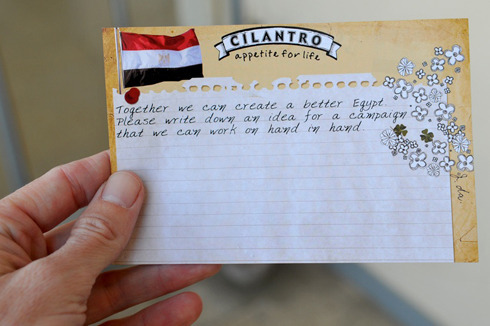 CILANTRO
appetite for life
Together we can create a better Egypt.
Please write down an idea for a campaign
that we can work on hand in hand.